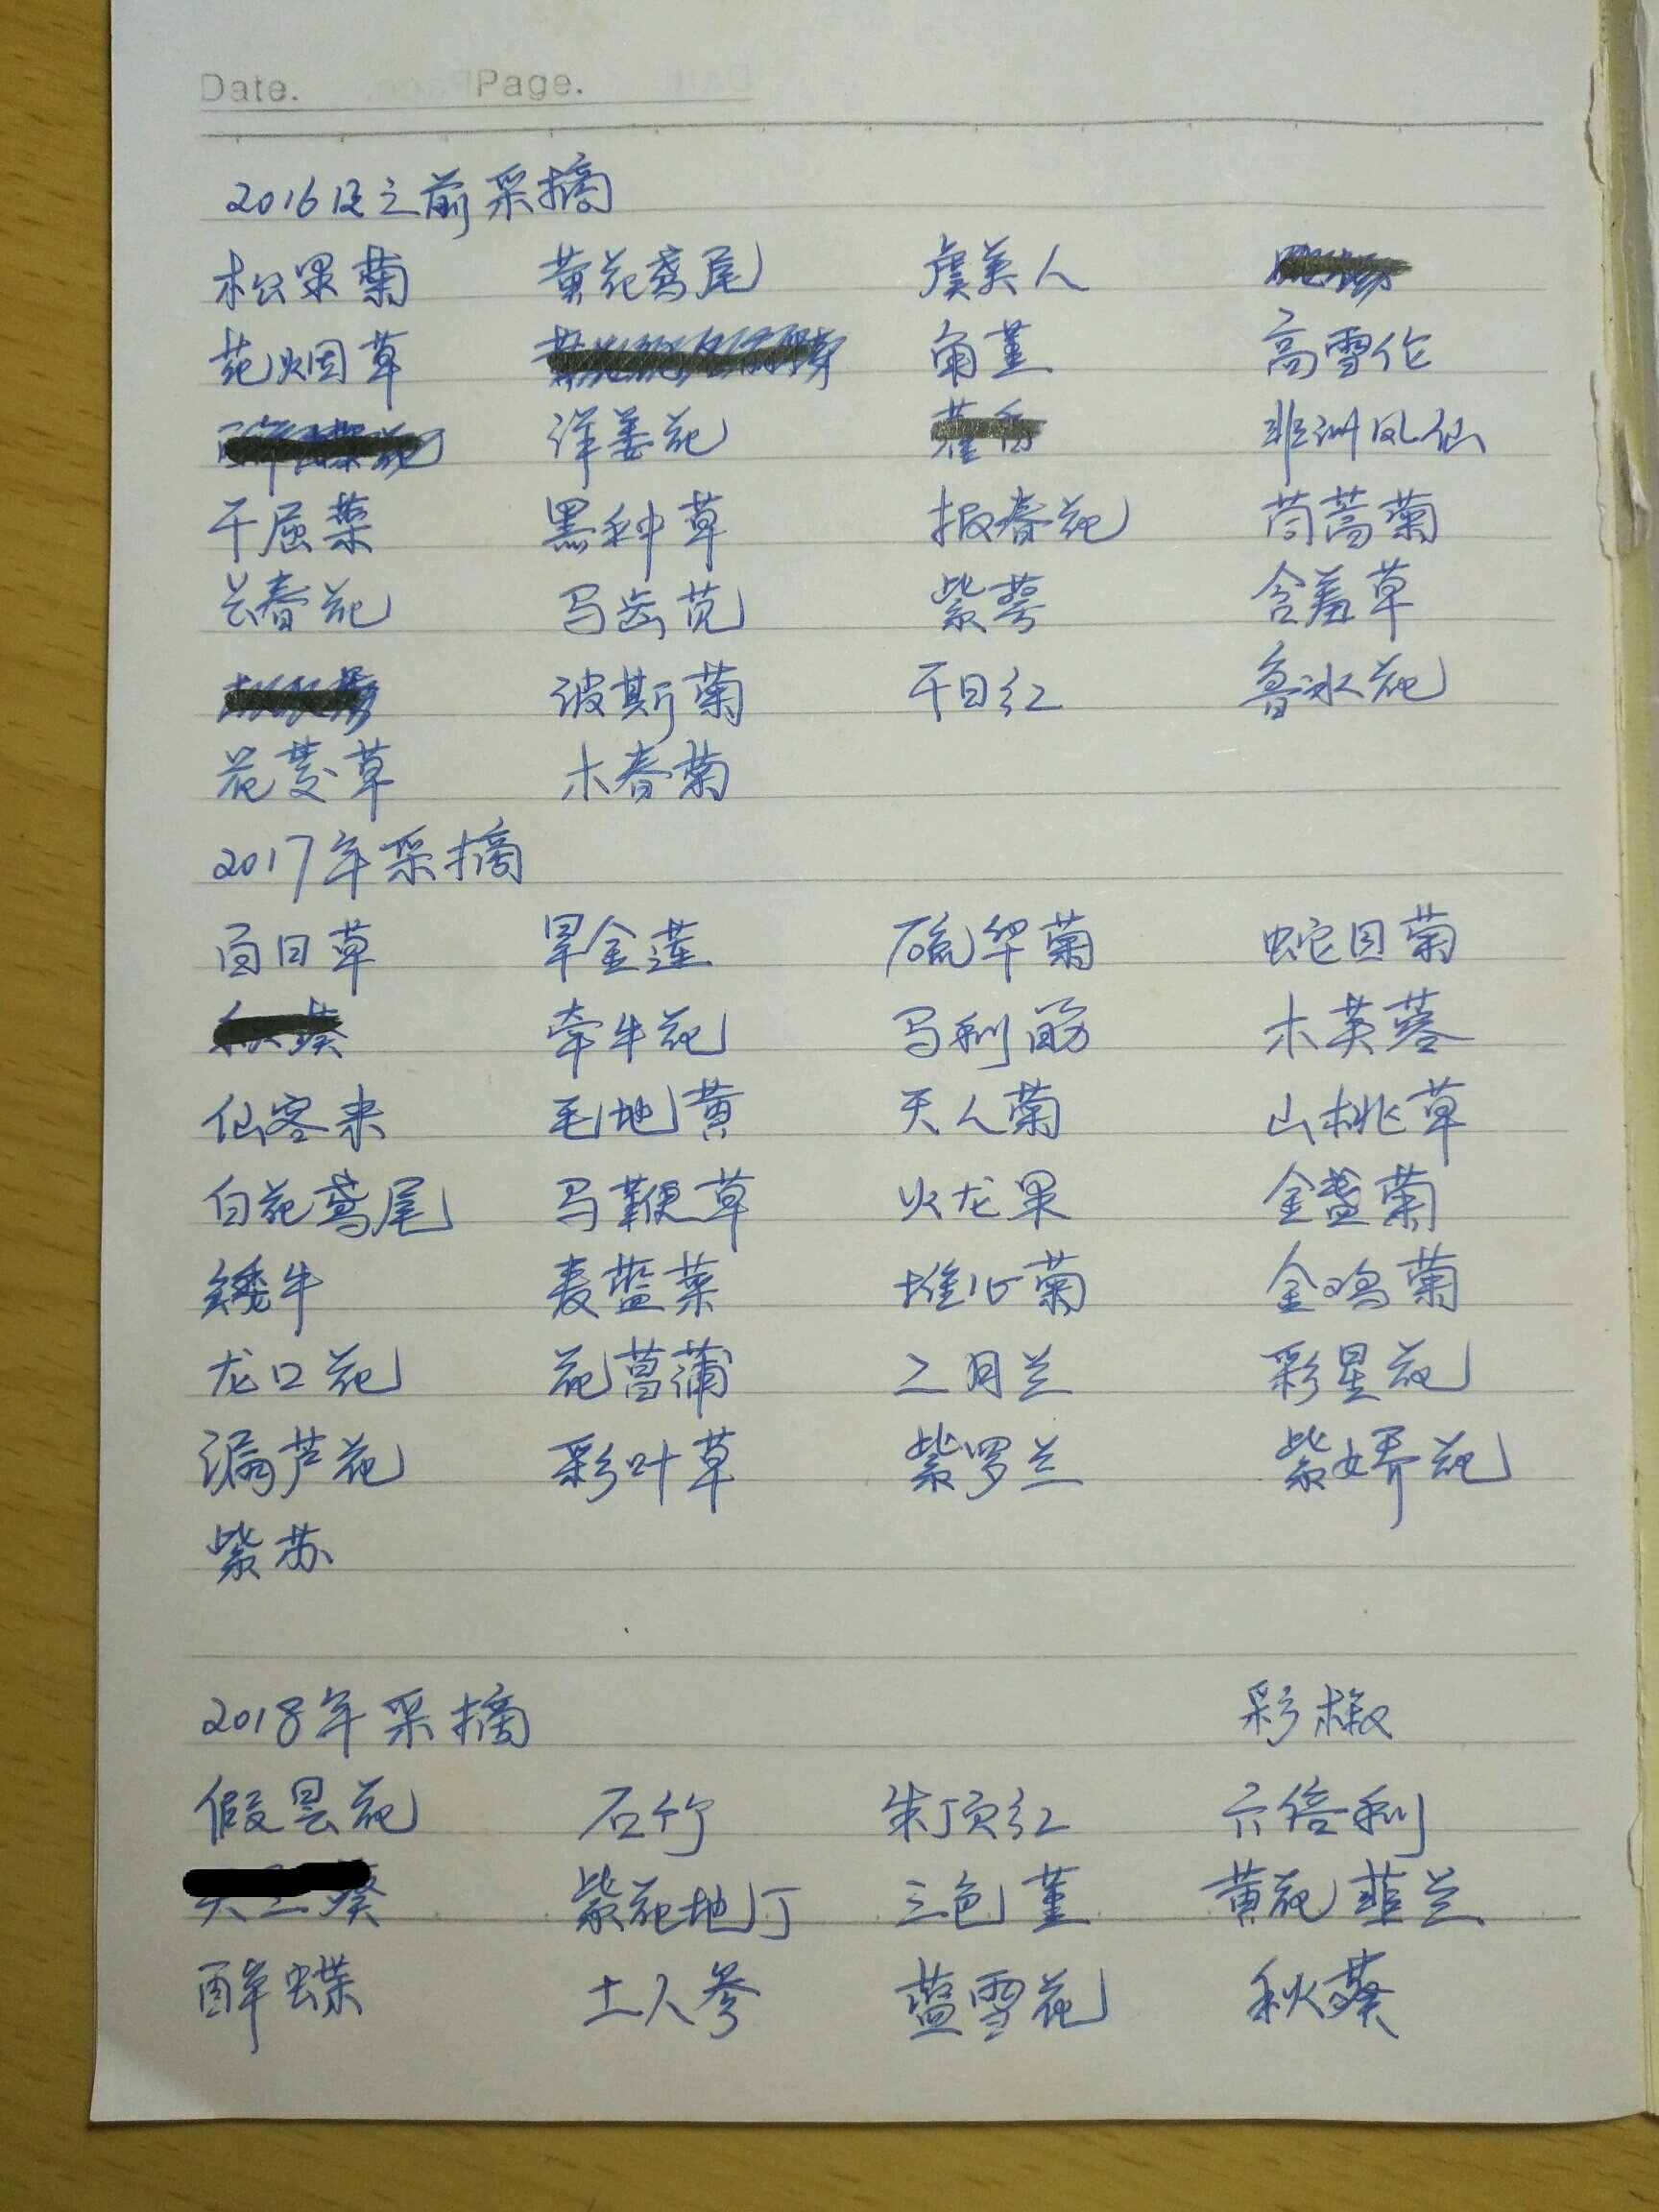 Date. Page.
2016及之前采摘
松果菊 黄花鸢尾 虞美人
花烟草 角堇 高雪伦
洋姜花 藿香 非洲凤仙
千屈菜 黑种草 报春花 茼蒿菊
长春花 马齿苋 紫萼 含羞草
波斯菊 千日红 鲁冰花
花菱草 木春菊
2017年采摘
百日草 旱金莲 硫华菊 蛇目菊
牵牛花 马利筋 木芙蓉
仙客来 毛地黄 天人菊 山桃草
白花鸢尾 马鞭草 火龙果 金盏菊
矮牛 麦蓝菜 堆心菊 金鸡菊
龙口花 花菖蒲 二月兰 彩星花
漏芦花 彩叶草 紫罗兰 紫娇花
紫苏
2018年采摘 彩椒
假昙花 石竹 朱顶红 六倍利
紫花地丁 三色堇 黄花韭兰
醉蝶 土人参 蓝雪花 秋葵